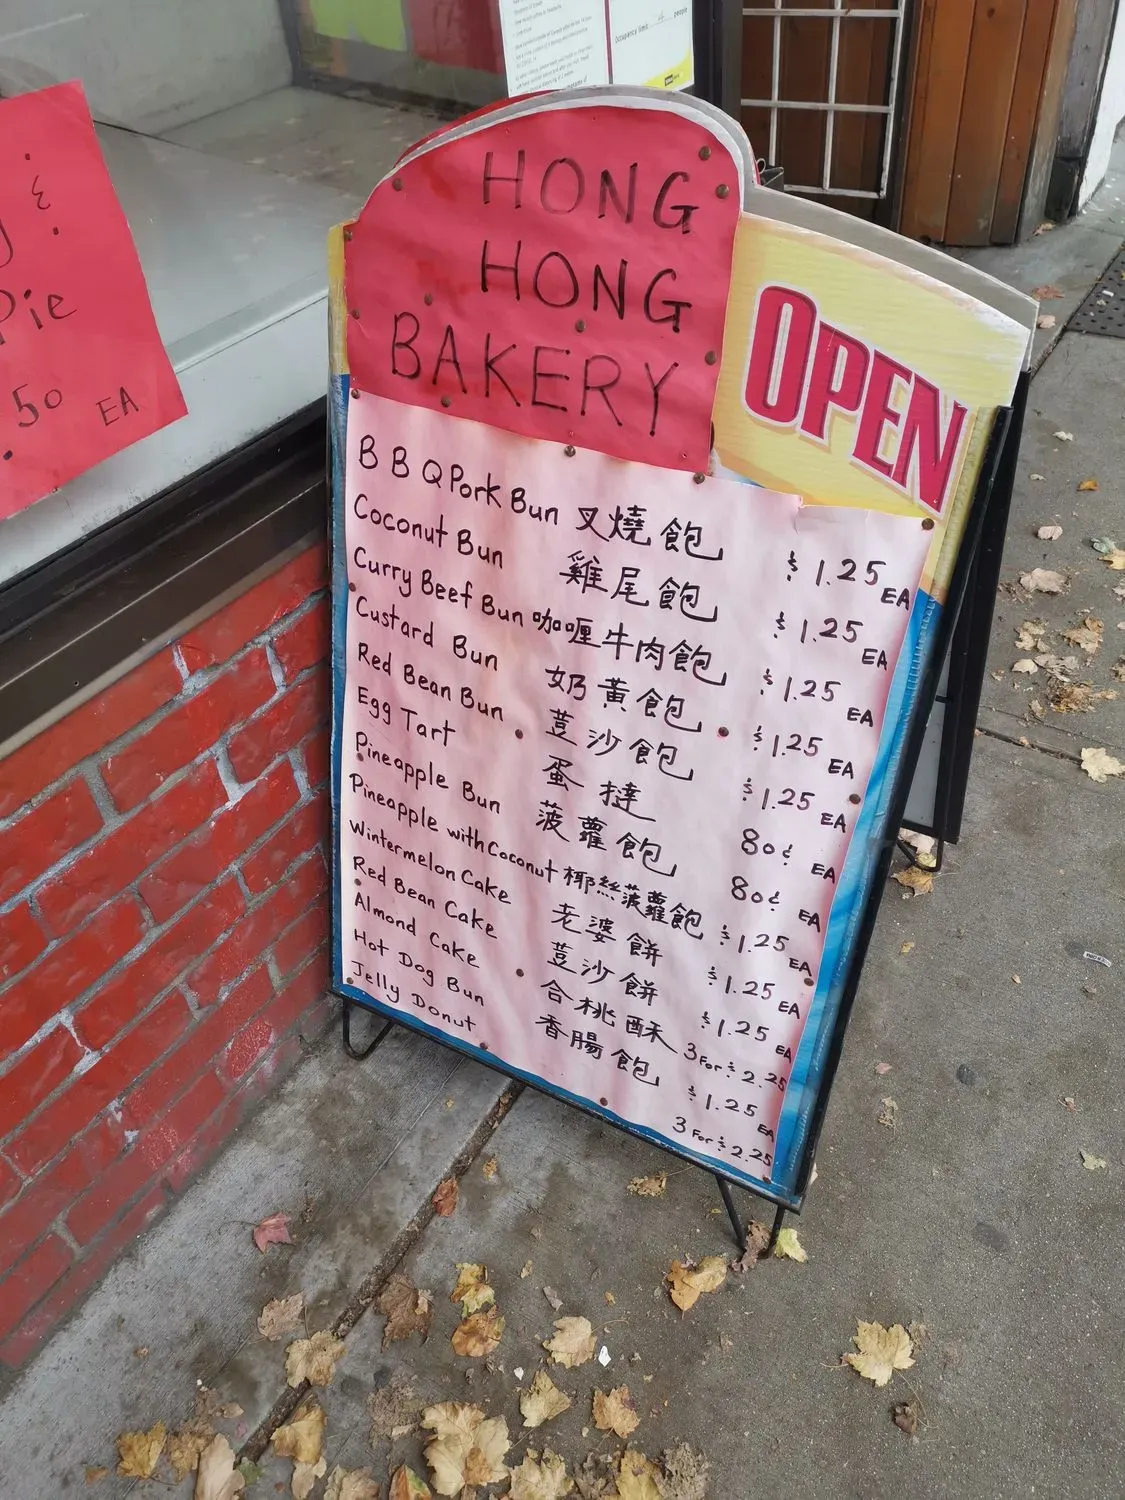 Occupancy limit: 4 people
&
Pie
.50 EA
HONG
HONG
BAKERY
OPEN
BBQ Pork Bun 叉燒飽 $1.25 EA
Coconut Bun 雞尾飽 $1.25 EA
Curry Beef Bun 咖喱牛肉飽 $1.25 EA
Custard Bun 奶黃飽 $1.25 EA
Red Bean Bun 荳沙飽 $1.25 EA
Egg Tart 蛋撻 80¢ EA
Pineapple Bun 菠蘿飽 80¢ EA
Pineapple with Coconut 椰絲菠蘿飽 $1.25 EA
Wintermelon Cake 老婆餅 $1.25 EA
Red Bean Cake 荳沙餅 $1.25 EA
Almond Cake 合桃酥 3 For $2.25
Hot Dog Bun 香腸飽 $1.25 EA
Jelly Donut 3 For $2.25